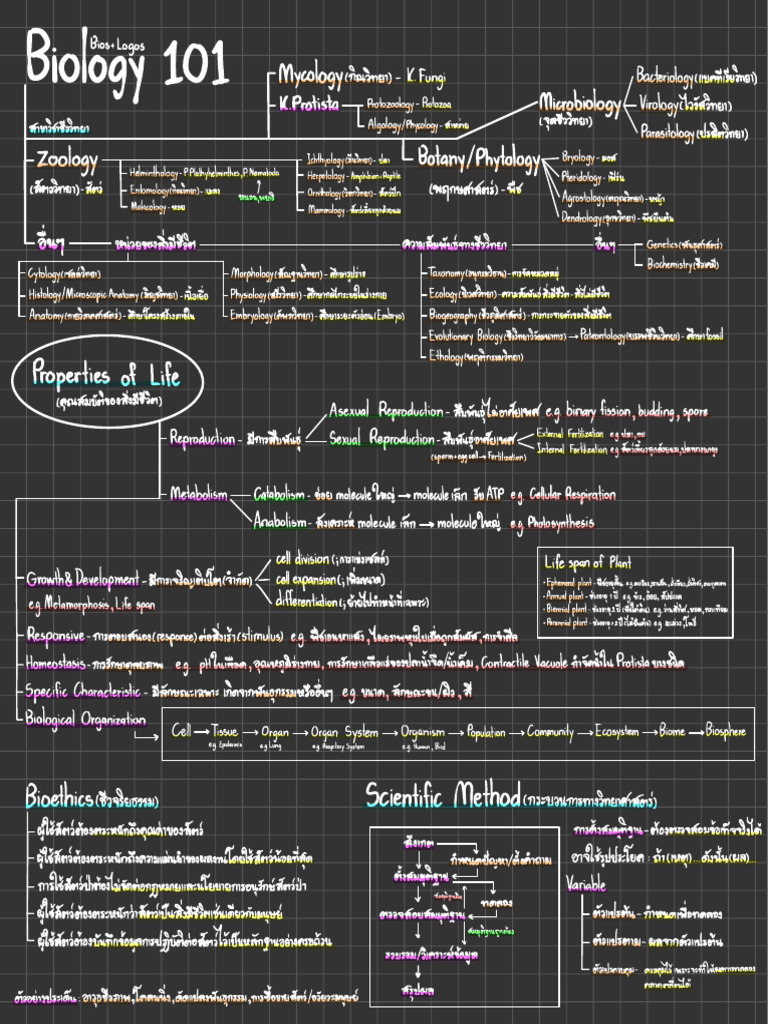 Biology 101
Bios+Logos
สาขาวิชาชีววิทยา
Mycology (กิณวิทยา) - K. Fungi
K.Protista
Protozoology - Protozoa
Algology/Phycology - สาหร่าย
Microbiology
(จุลชีววิทยา)
Bacteriology (แบคทีเรียวิทยา)
Virology (ไวรัสวิทยา)
Parasitology (ปรสิตวิทยา)
Zoology
(สัตววิทยา) - สัตว์
Helminthology - P.Plathyhelminthes, P.Nematoda
Entomology (กีฏวิทยา) - แมลง
Malacology - หอย
หนอน, พยาธิ
Ichthyology (มีนวิทยา) - ปลา
Herpetology - Amphibian-Reptile
Ornithology (ปักษีวิทยา) - สัตว์ปีก
Mammalogy - สัตว์เลี้ยงลูกด้วยนม
Botany/Phytology
(พฤกษศาสตร์) - พืช
Bryology - มอส
Pteridology - เฟิร์น
Agrostology - หญ้า
Dendrology - พืชยืนต้น
อื่นๆ
หน่วยของสิ่งมีชีวิต
ความสัมพันธ์ทางชีววิทยา
อื่นๆ
Genetics (พันธุศาสตร์)
Biochemistry (ชีวเคมี)
Cytology (เซลล์วิทยา)
Histology/Microscopic Anatomy (มิญชวิทยา) - เนื้อเยื่อ
Anatomy (กายวิภาคศาสตร์) - ศึกษาโครงสร้างภายใน
Morphology (สัณฐานวิทยา) - ศึกษารูปร่าง
Physiology (สรีรวิทยา) - ศึกษากลไกระบบในร่างกาย
Embryology (คัพภวิทยา) - ศึกษาระยะตัวอ่อน (Embryo)
Taxonomy (อนุกรมวิธาน) - การจัดหมวดหมู่
Ecology (นิเวศวิทยา) - ความสัมพันธ์สิ่งมีชีวิต - สิ่งไม่มีชีวิต
Biogeography (ชีวภูมิศาสตร์) - การกระจายของสิ่งมีชีวิต
Evolutionary Biology (ชีววิทยาวิวัฒนาการ) → Paleontology (บรรพชีวินวิทยา) - ศึกษาfossil
Ethology (พฤติกรรมวิทยา)
Properties of Life
(คุณสมบัติของสิ่งมีชีวิต)
Reproduction - มีการสืบพันธุ์
Asexual Reproduction - สืบพันธุ์ไม่อาศัยเพศ e.g. binary fission, budding, spore
Sexual Reproduction - สืบพันธุ์อาศัยเพศ
(sperm+egg cell → Fertilization)
External Fertilization e.g. ปลา, กบ
Internal Fertilization e.g. สัตว์เลี้ยงลูกด้วยนม,
Metabolism
Catabolism - ย่อย molecule ใหญ่ → molecule เล็ก ได้ ATP e.g. Cellular Respiration
Anabolism - สังเคราะห์ molecule เล็ก → molecule ใหญ่ e.g. Photosynthesis
Growth & Development - มีการเจริญเติบโต (จำกัด)
e.g. Metamorphosis, Life span
cell division (; การแบ่งเซลล์)
cell expansion (; เพิ่มขนาด)
differentiation (; ย้ายไปทำหน้าที่เฉพาะ)
Life span of Plant
• Ephemeral plant -
• Annual plant - ช่วงอายุ 1 ปี e.g. ข้าว, อ้อย, สับปะรด
• Biennial plant - ช่วงอายุ 2 ปี
• Perennial plant - ช่วงอายุ >2 ปี
Responsive - การตอบสนอง (response) ต่อสิ่งเร้า (stimulus) e.g. พืชเอนหาแสง, ไมยราพหุบใบเมื่อถูกสัมผัส, การจำศีล
Homeostasis - การรักษาดุลยภาพ e.g. pH ในเลือด, อุณหภูมิร่างกาย, การรักษาเกลือแร่ของปลาน้ำจืด/น้ำเค็ม, Contractile Vacuole กำจัดน้ำใน Protista บางชนิด
Specific Characteristic - มีลักษณะเฉพาะ เกิดจากพันธุกรรมหรืออื่นๆ e.g. ขนาด, ลักษณะขน/ผิว, สี
Biological Organization
Cell → Tissue → Organ → Organ System → Organism → Population → Community → Ecosystem → Biome → Biosphere
e.g. Epidermis e.g. Lung e.g. Respitory System e.g. Human, Bird
Bioethics (ชีวจริยธรรม)
ผู้ใช้สัตว์ต้องตระหนักถึงคุณค่าของสัตว์
ผู้ใช้สัตว์ต้องตระหนักถึงความแม่นยำของผลงานโดยใช้สัตว์น้อยที่สุด
การใช้สัตว์ป่าต้องไม่ขัดต่อกฎหมายและนโยบายการอนุรักษ์สัตว์ป่า
ผู้ใช้สัตว์ต้องตระหนักว่าสัตว์เป็นสิ่งมีชีวิตเช่นเดียวกับมนุษย์
ผู้ใช้สัตว์ต้องบันทึกข้อมูลการปฏิบัติต่อสัตว์ไว้เป็นหลักฐานอย่างครบถ้วน
ตัวอย่างประเด็น : อาวุธชีวภาพ, โคลนนิ่ง, ดัดแปลงพันธุกรรม, การซื้อขายสัตว์/อวัยวะมนุษย์
Scientific Method (กระบวนการทางวิทยาศาสตร์)
สังเกต
กำหนดปัญหา/ตั้งคำถาม
ตั้งสมมุติฐาน
ทดลอง
ตรวจสอบสมมุติฐาน
สมมุติฐานถูกต้อง
รวบรวม/วิเคราะห์ข้อมูล
สรุปผล
การตั้งสมมุติฐาน - ต้องตรวจสอบข้อเท็จจริงได้
อาจใช้รูปประโยค : ถ้า (เหตุ) ... ดังนั้น (ผล) ...
Variable
ตัวแปรต้น - กำหนดเพื่อทดลอง
ตัวแปรตาม - ผลจากตัวแปรต้น
ตัวแปรควบคุม - ควบคุมไว้ เพราะจะทำให้ผลการทดลองคลาดเคลื่อนได้